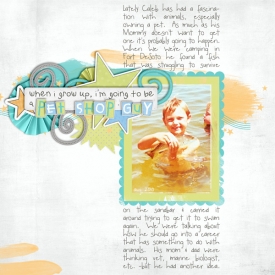 Lately Caleb has had a fascina-
tion with animals, especially
owning a pet. As much as his
Mommy doesn't want to get
one it's probably going to happen.
When we were camping in
Fort DeSoto he found a fish
that was struggling to survive
when i grow up, i'm going to be
a
PET SHOP GUY
on the sandbar & carried it
around trying to get it to swim
again. We were talking about
how he should go into a career
that has something to do with
animals. His mom & dad were
thinking vet, marine biologist,
etc. but he had another idea.